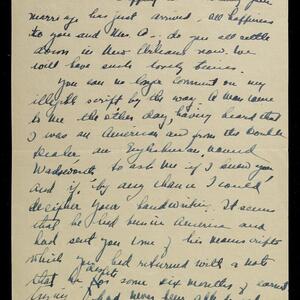 marriage has just arrived - all happiness
to you and Mrs. A-. do you all settle
down in New Orleans now. We
will have such lovely times.
You can no longer comment on my
illegible script by the way. A man came
to me the other day having heard that
I was an American and from the Double
Dealer, an Englishman, named
Wadsworth to ask me if I knew you
and if, "by any chance I could
decipher your handwriting". It seems
that he had been in America and
had sent you some of his manuscripts
which you had returned with a note
that he after some six months of earnest
had never been able to